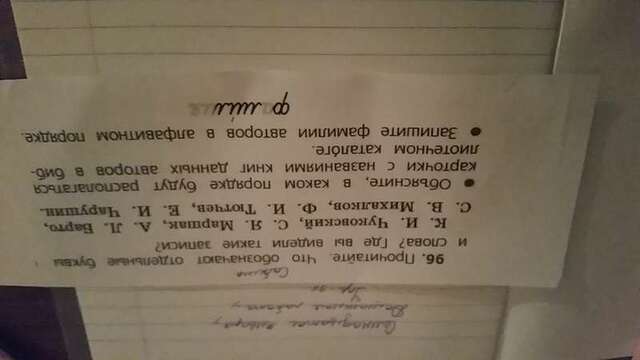 Семнадцатое января,
Домашняя работа,
Упр. 96
96. Прочитайте. Что обозначают отдельные буквы
и слова? Где вы видели такие записи?
К. И. Чуковский, С. Я. Маршак, А. Л. Барто,
С. В. Михалков, Ф. И. Тютчев, Е. И. Чарушин.
● Объясните, в каком порядке будут располагаться
карточки с названиями книг данных авторов в биб-
лиотечном катало́ге.
● Запишите фамилии авторов в алфавитном порядке.
фами́лия